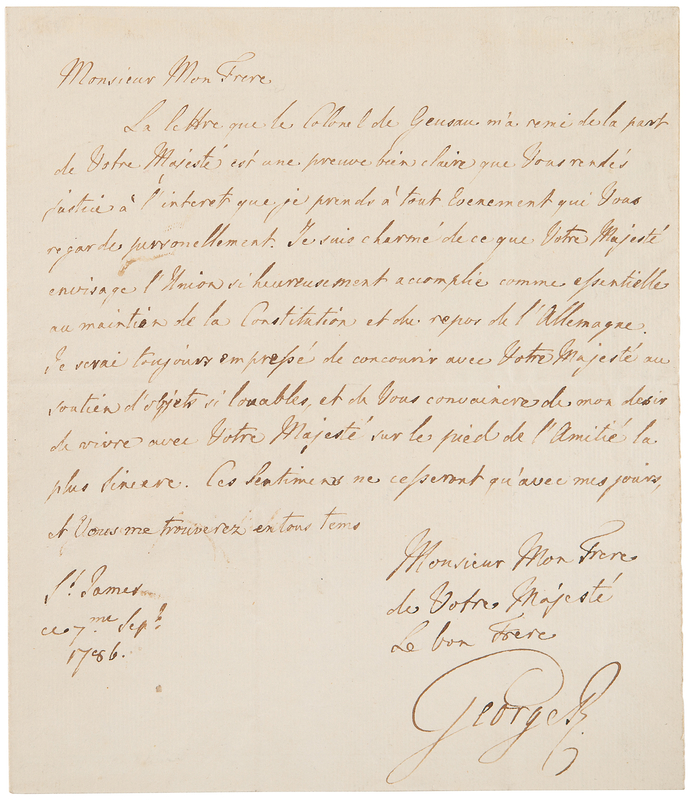 Monsieur Mon Frere
La lettre que le Colonel de Geusau m'a remi de la part
de Votre Majesté est une preuve bien claire que Vous rendés
justice à l'interet que je prends à tout Evenement qui Vous
regarde personellement. Je suis charmé de ce que Votre Majesté
envisage l'Union si heureusement accomplie comme essentielle
au maintien de la Constitution et du repos de l'Allemagne.
Je serai toujours empressé de concourir avec Votre Majesté au
soutien d'objets si louables, et de Vous convaincre de mon desir
de vivre avec Votre Majesté sur le pied de l'Amitié la
plus sincere. Ces Sentimens ne cesseront qu'avec mes jours,
et Vous me trouverez en tous tems
Monsieur Mon Frere
de Votre Majesté
Le bon Frere
George R
St James
ce 7me Sepr
1786.